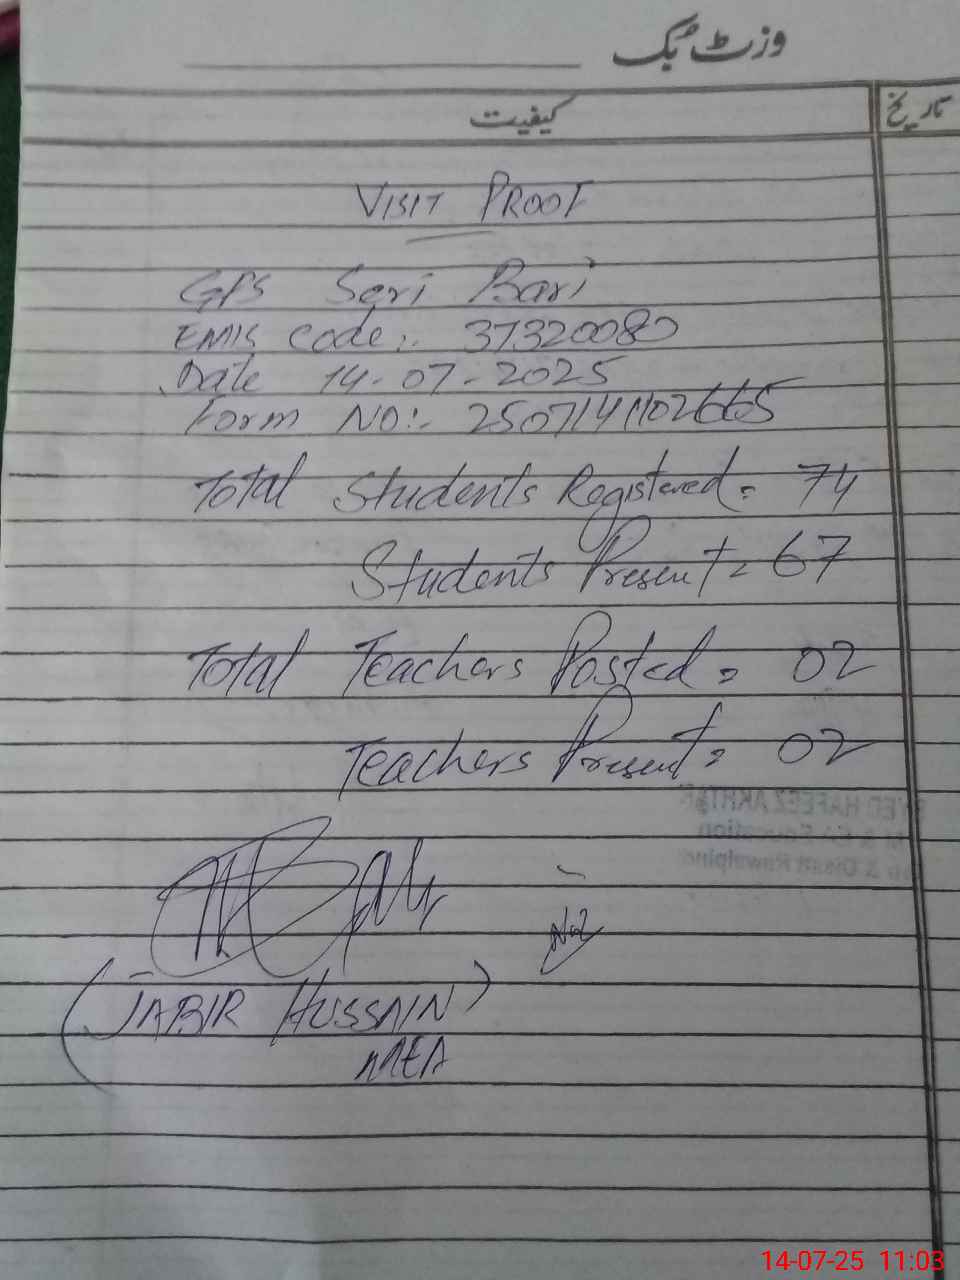 وزٹ بک
کیفیت
تاریخ
VISIT PROOF
GPS Seri Bari
EMIS code:. 37320080
Date 14-07-2025
Form NO:. 2507141102665
Total Students Registered = 74
Students Present = 67
Total Teachers Posted = 02
Teachers Present = 02
(JABIR HUSSAIN)
MEA
14-07-25 11:03